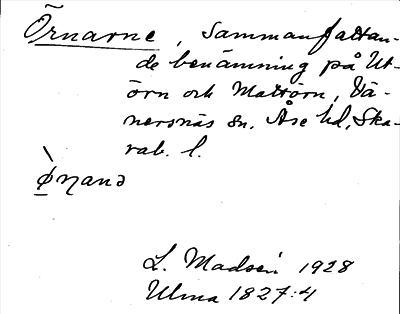 Örnarne, sammanfattan-
de benämning på Ut-
örn och Mattörn, Vä-
nersnäs sn. Åse hd, Ska-
rab. l.
L. Madsén 1928
Ulma 1827:4